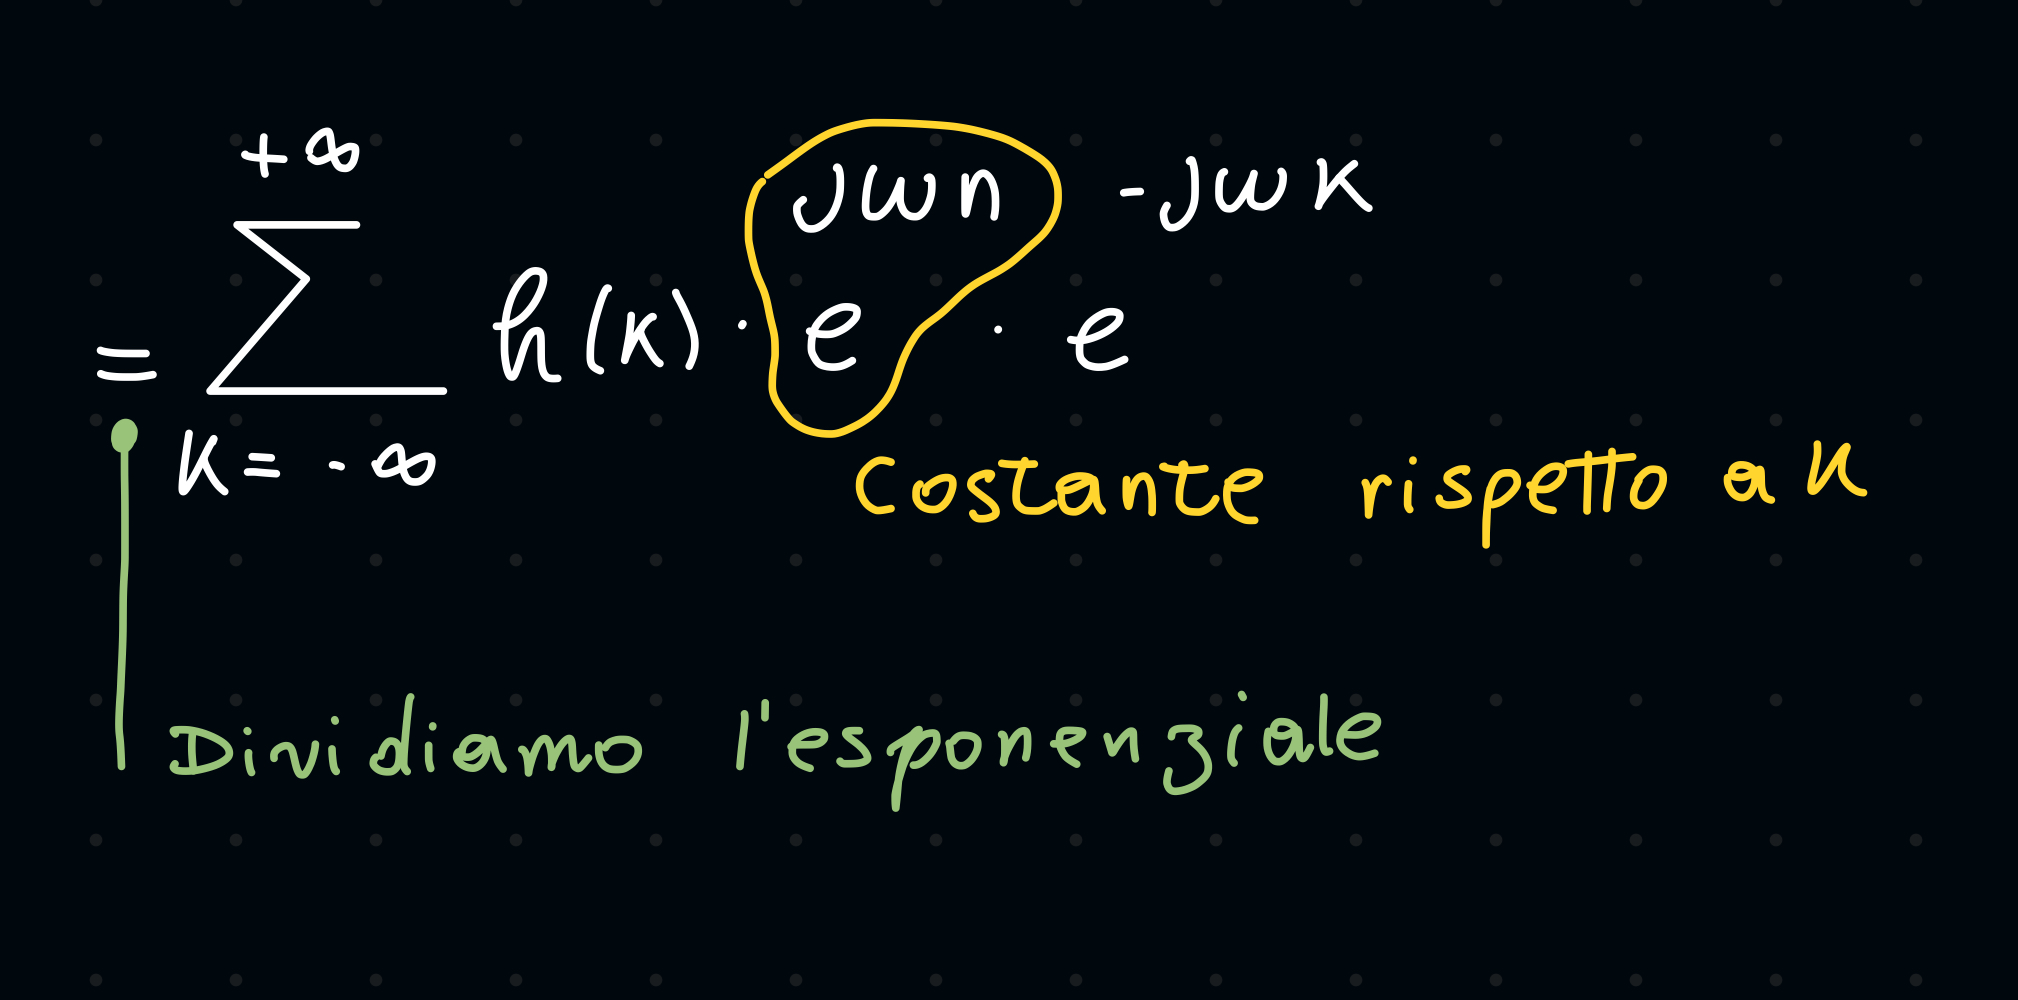 +∞
jωn -jωk
= ∑ h(k) · e · e
k = -∞
Costante rispetto a k
Dividiamo l'esponenziale